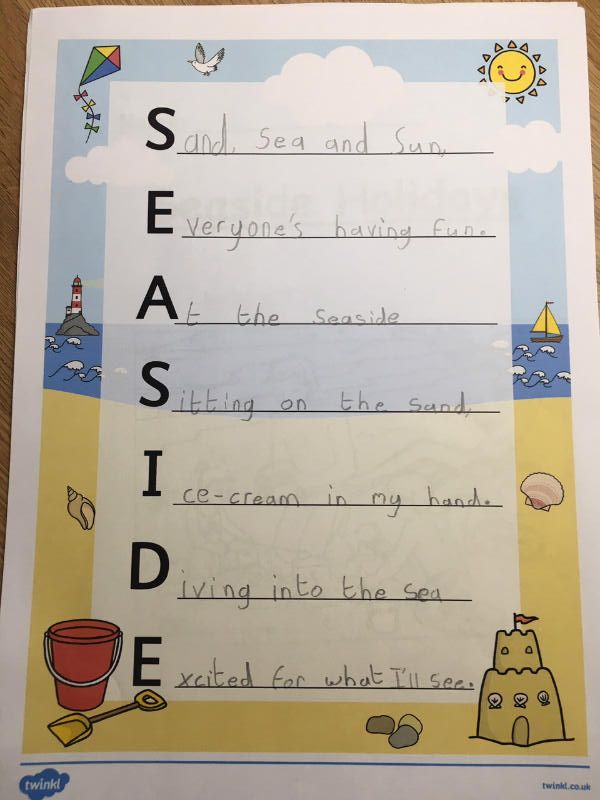 Sand, Sea and Sun,
Everyone's having fun.
At the seaside
Sitting on the sand,
Ice-cream in my hand.
Diving into the sea
Excited for what I'll see.
twinkl
twinkl.co.uk